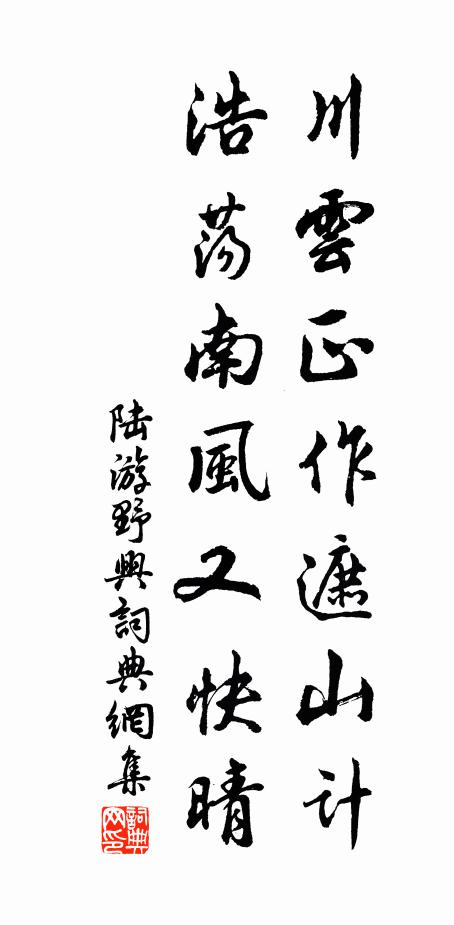 川雲正作遮山計
浩蕩南風又快晴
陸游野興詞典網集
詞典网印